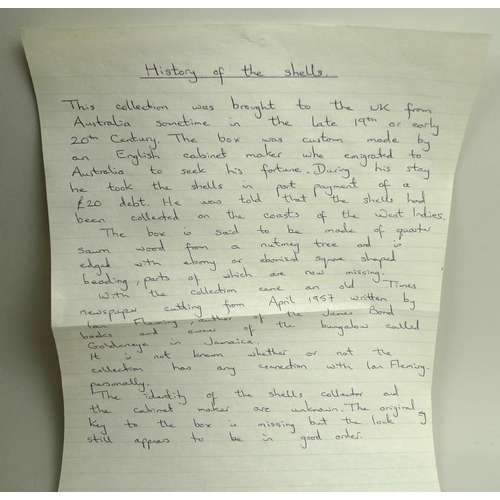 History of the shells.
This collection was brought to the UK from
Australia sometime in the late 19th or early
20th Century. The box was custom made by
an English cabinet maker who emigrated to
Australia to seek his fortune. During his stay
he took the shells in part payment of a
£20 debt. He was told that the shells had
been collected on the coasts of the West Indies.
The box is said to be made of quarter
sawn wood from a nutmeg tree and is
edged with ebony or ebonised square shaped
beading, parts of which are now missing.
With the collection came an old Times
newspaper cutting from April 1957 written by
Ian Fleming, author of the James Bond
books and owner of the bungalow called
Goldeneye in Jamaica.
It is not known whether or not the
collection has any connection with Ian Fleming.
personally.
The identity of the shells collector and
the cabinet maker are unknown. The original
key to the box is missing but the lock
still appears to be in good order.